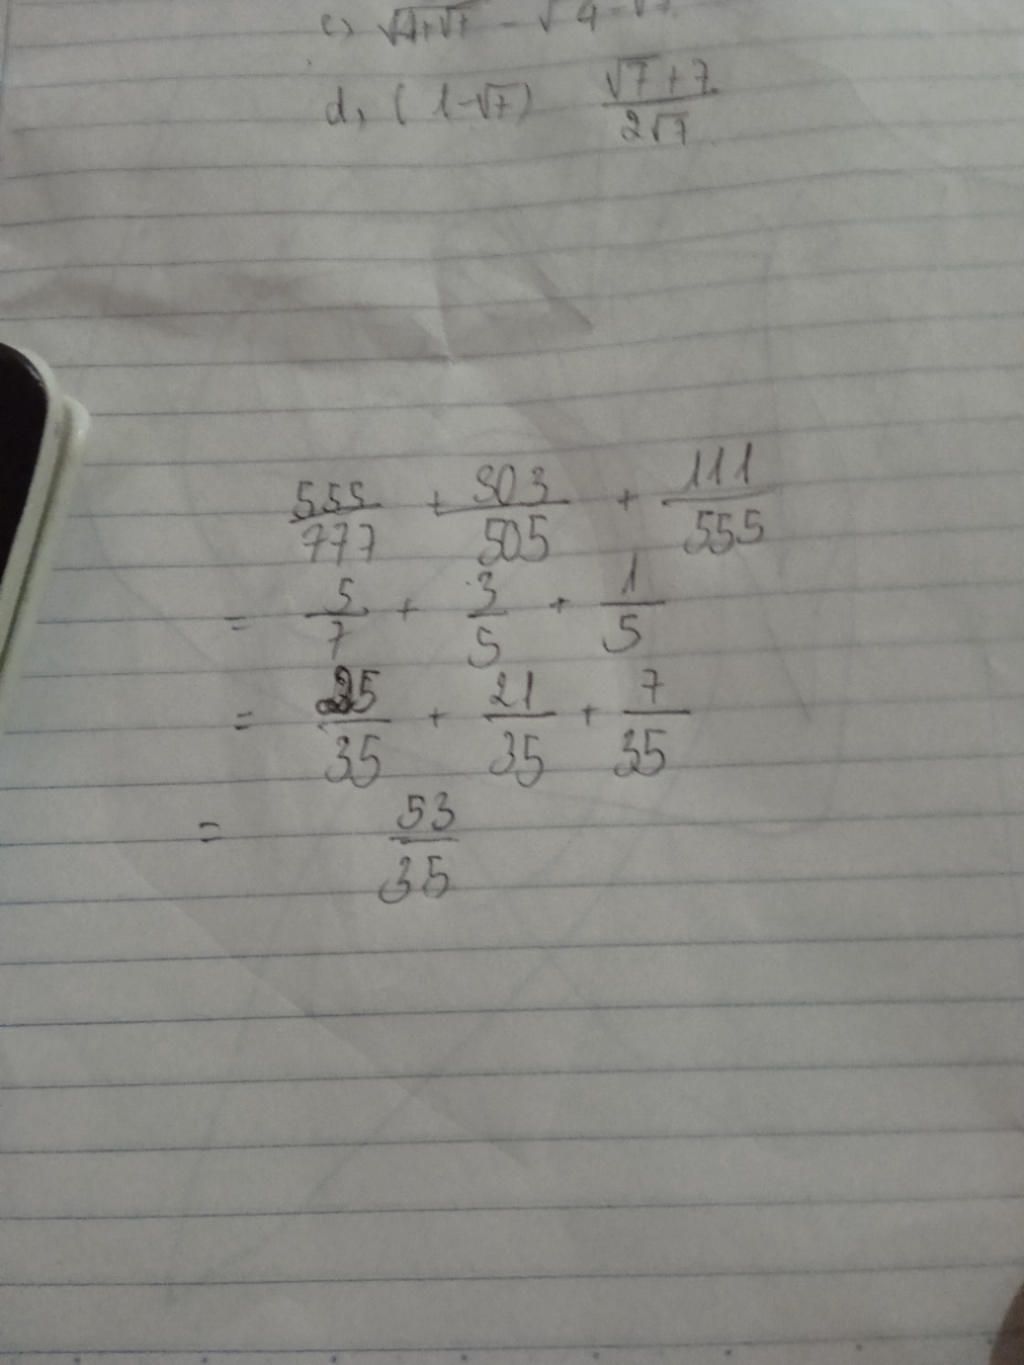 c) √4+√7 - √4-√7
d, (1-√7) √7+7/2√7
555/777 + 303/505 + 111/555
= 5/7 + 3/5 + 1/5
= 25/35 + 21/35 + 7/35
= 53/35